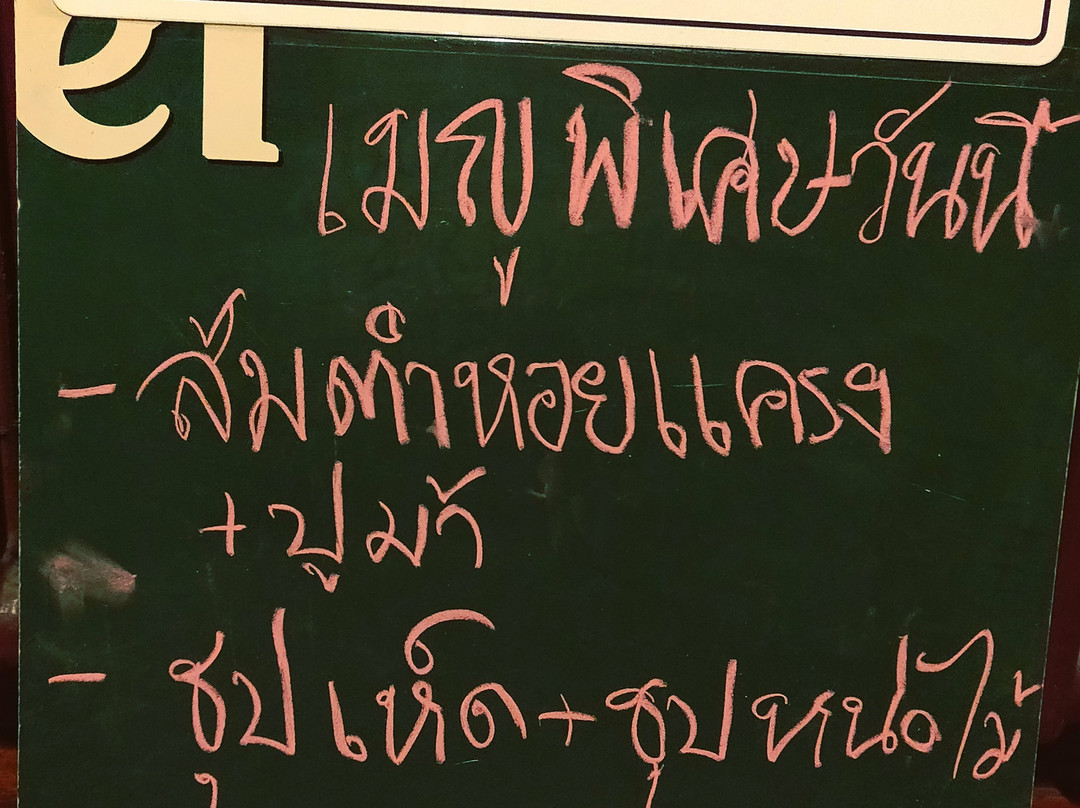 เมญูพิเศษวันนี้
- ส้มตำหอยแครง
+ ปูม้า
- ซุปเห็ด + ซุปหน่อไม้